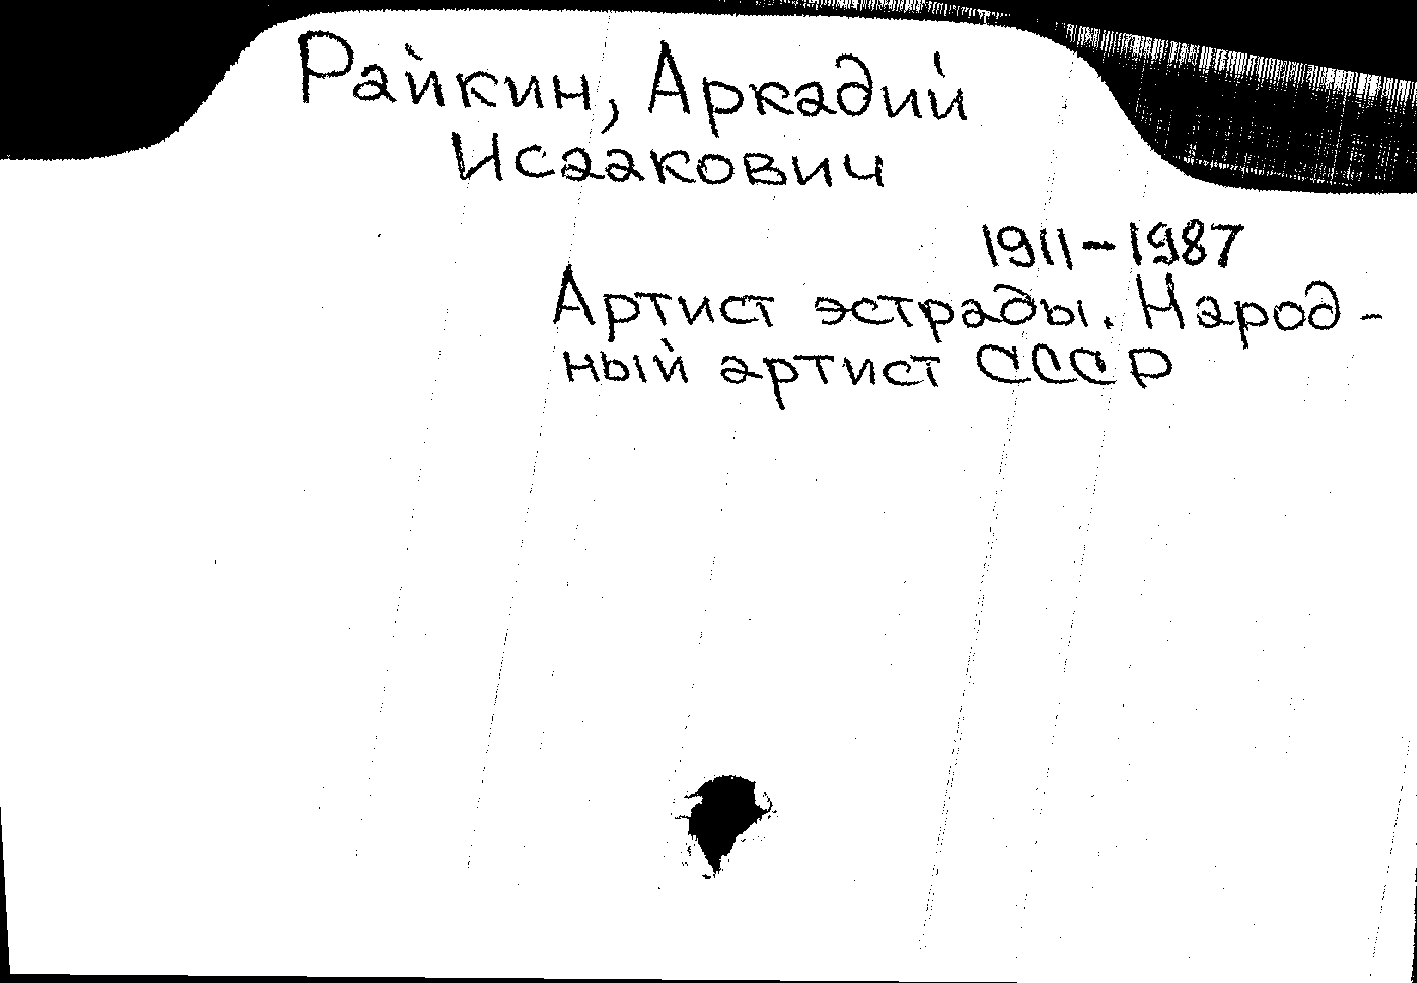 Райкин, Аркадий
Исаакович
1911-1987
Артист эстрады. Народ-
ный артист СССР